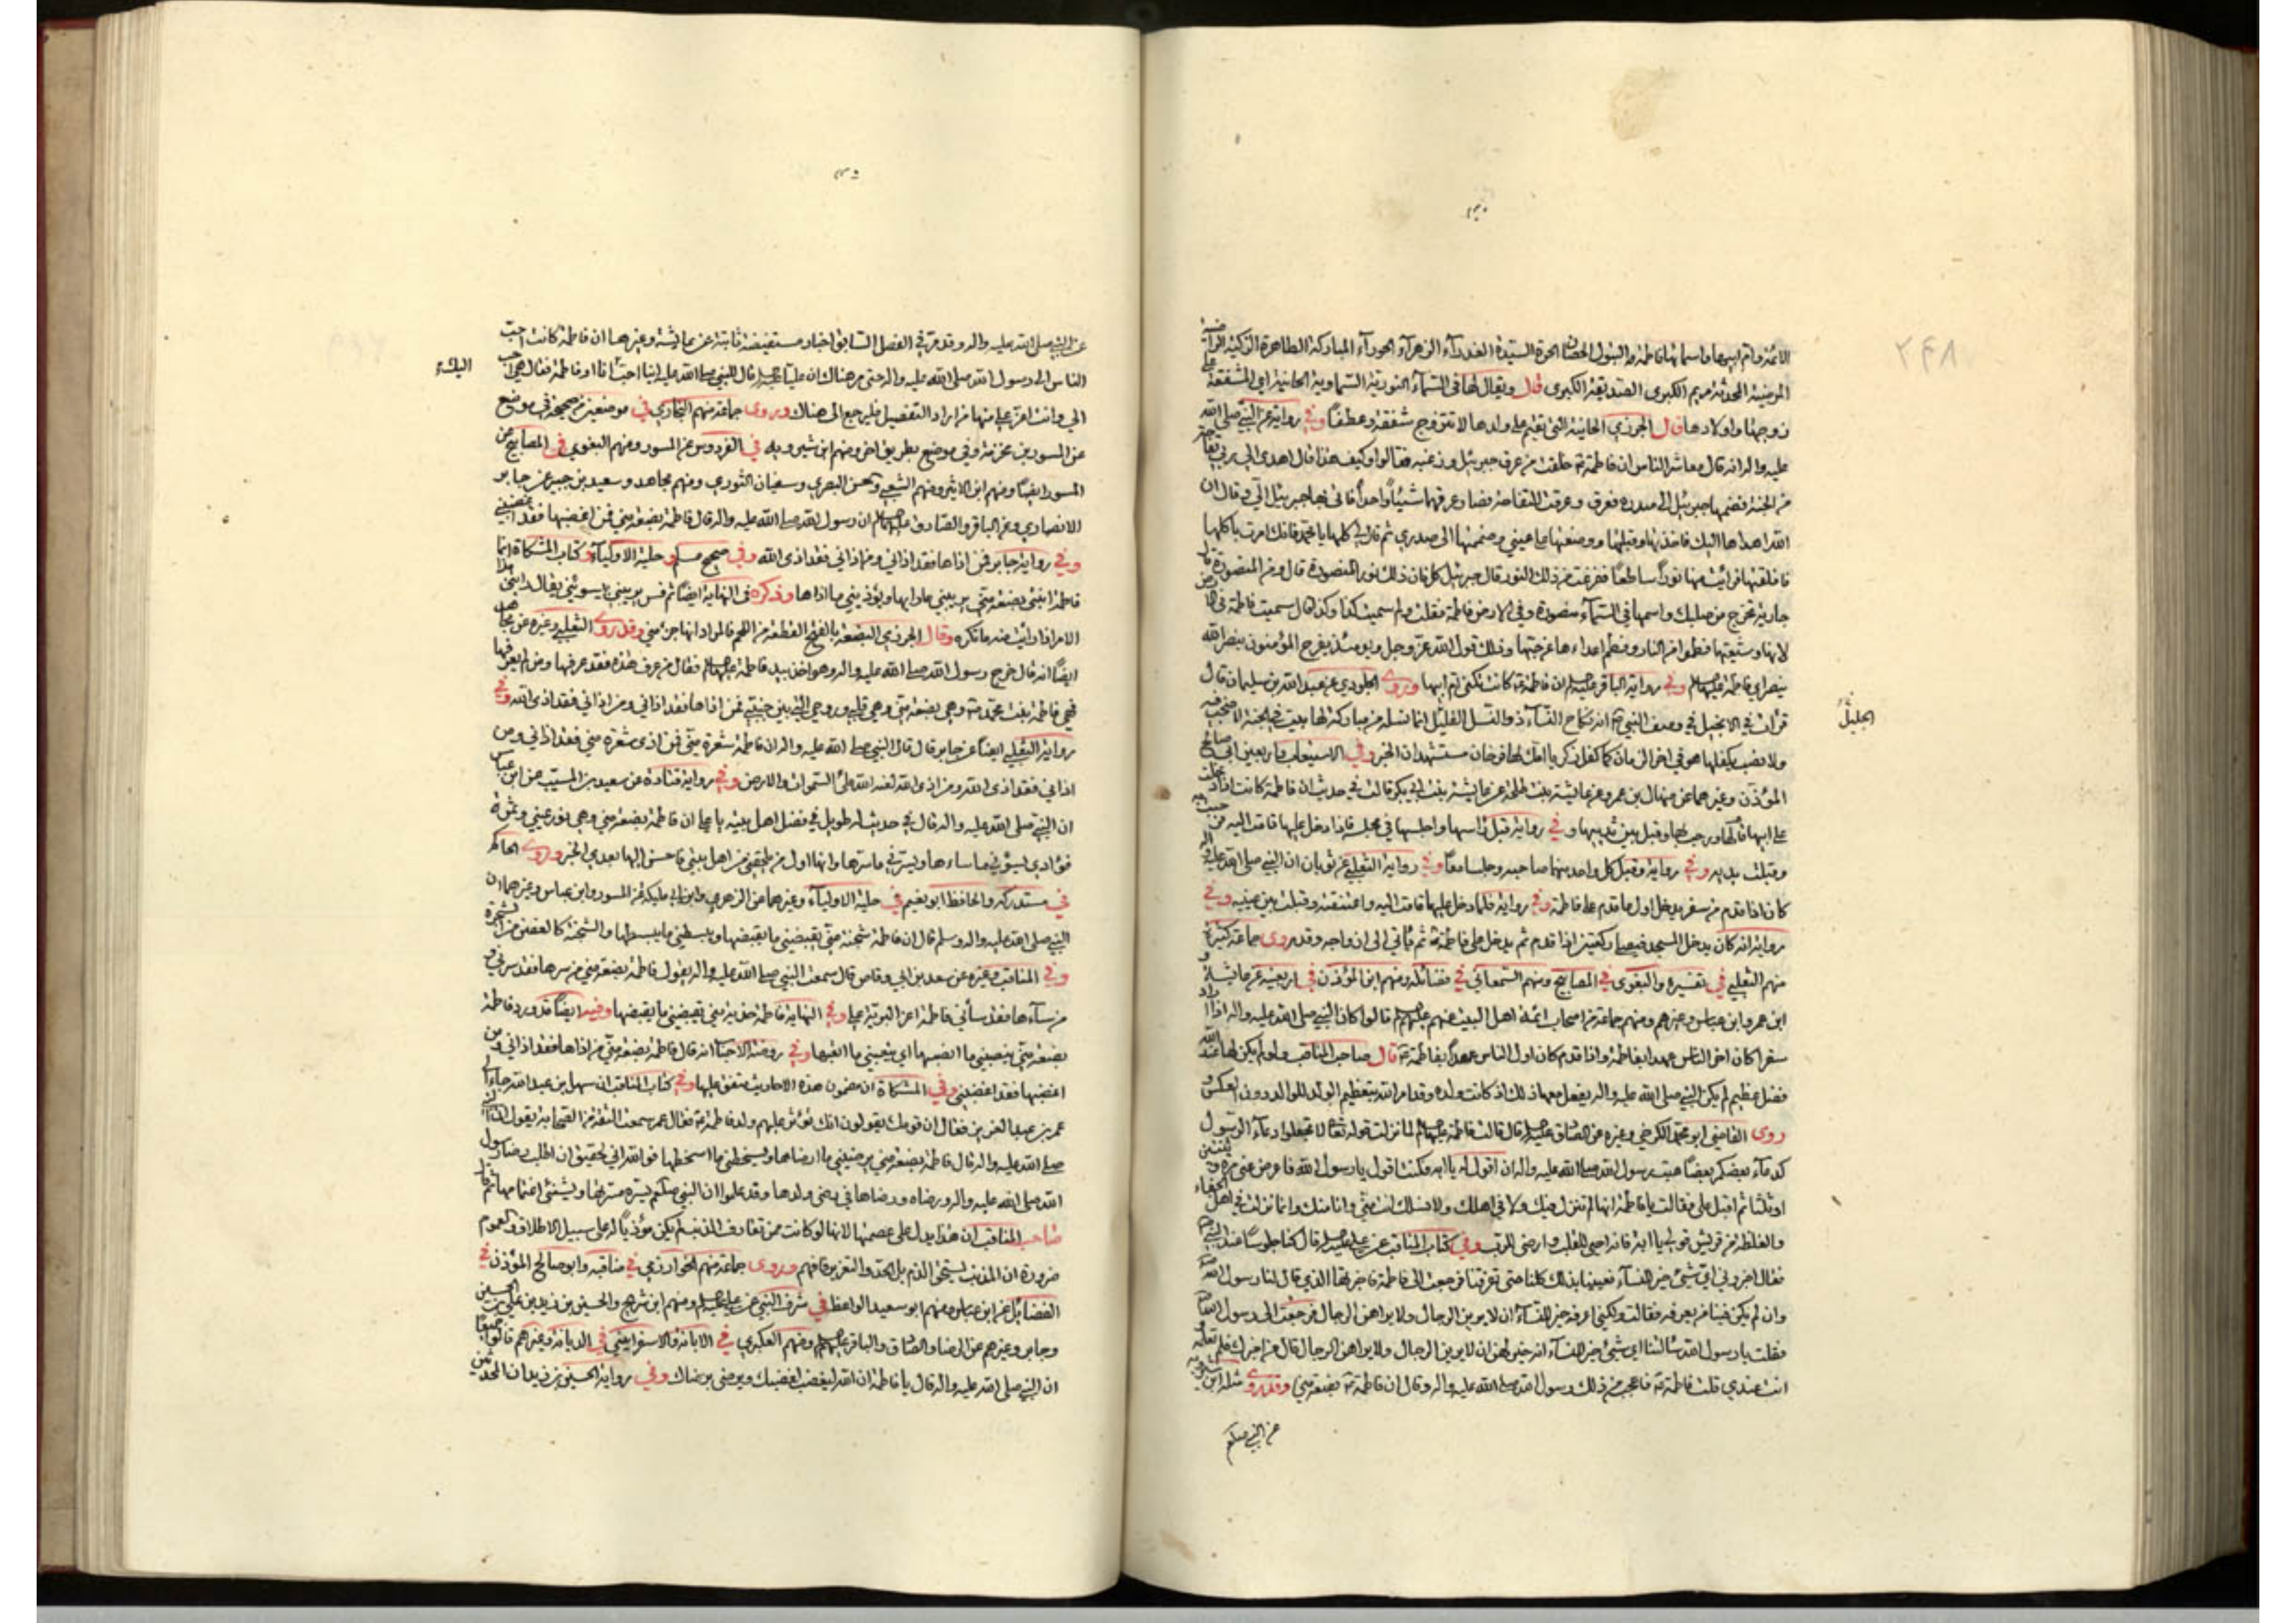 ٢٤٨
الائمة وام ابيها واسمائها فاطمة والبتول الحصان الحرة السيدة العذراء الزهراء الحوراء المباركة الطاهرة الزكية الراضية
المرضية المحدثة مريم الكبرى الصديقة الكبرى قال ويقال لها في السماء النورية السماوية الحانية اي المشفقة على
زوجها واولادها قال الجزري الحانية التي تقيم على ولدها لا تتزوج شفقة وعطفا وفي رواية عن النبي صلى الله
عليه واله انه قال معاشر الناس ان فاطمة خلقت من عرق جبرئيل وزغبه فقالوا وكيف هذا قال اهدى الي ربي تفاحة
من الجنة فضمها جبرئيل الى صدره فعرق وعرقت التفاحة فصار عرقهما شيئا واحدا فاتى بها جبرئيل الي وقال ان
الله اهداها اليك فاخذتها وقبلتها ووضعتها على عيني وضممتها الى صدري ثم قال لي كلها يا محمد فانك امرت باكلها
فافلقتها فرايت منها نورا ساطعا ففزعت من ذلك النور قال جبرئيل كل فان ذلك نور المنصورة قلت ومن المنصورة قال
جارية تخرج من صلبك واسمها في السماء منصورة وفي الارض فاطمة فقلت ولم سميت كذا وكذا قال سميت فاطمة في الارض
لانها وشيعتها فطموا من النار وفطم اعداءها عن حبها وذلك قول الله عز وجل ويومئذ يفرح المؤمنون بنصر الله
بنصر اي فاطمة وفي رواية الباقر ان فاطمة كانت تكنى ام ابيها وروى الجلودي عن عبد الله بن سليمان قال
الجليل
قرات في الانجيل في وصف النبي انه نكاح النساء ذو النسل القليل انما نسله من مباركة لها بيت في الجنة لا صخب فيه
ولا نصب يكفلها هو في اخر الزمان كما كفل زكريا امك لها فرخان مستشهدان الخبر وفي الاستيعاب واربعين ابي صالح
المؤذن وغيرهما عن منهال بن عمرو عن عايشة بنت طلحة عن عايشة بنت ابي بكر قالت في حديث ان فاطمة كانت اذا دخلت
على ابيها قام لها ورحب بها وقبل بين ثدييها وفي رواية قبل راسها واجلسها في مجلسه فاذا دخل عليها قامت اليه فرحبت به
وقبلت يديه وفي رواية وقبل كل واحد منهما صاحبه وجلسا معا وفي رواية الثعلبي عن ثوبان ان النبي صلى الله عليه واله
كان اذا قدم من سفر يدخل اول ما قدم على فاطمة وفي رواية فلما دخل عليها قامت اليه واعتنقته وقبلت بين عينيه وفي
رواية انه كان يدخل المسجد فيصلي ركعتين اذا قدم ثم يدخل على فاطمة ثم ياتي الى ازواجه وقد روى جماعة كثيرة
منهم الثعلبي في تفسيره والبغوي في المصابيح ومنهم السمعاني في فضائله ومنهم ابن المؤذن في اربعينه عن عائشة و
ابن عمر وابن عباس وغيرهم ومنهم جماعة من اصحاب ائمة اهل البيت عنهم قالوا كان النبي صلى الله عليه واله اذا اراد
سفرا كان اخر الناس عهدا بفاطمة واذا قدم كان اول الناس عهدا بفاطمة قال صاحب المناقب ولو لم يكن لها عند الله
فضل عظيم لم يكن النبي صلى الله عليه واله يفعل معها ذلك اذ كانت ولده وقد امر الله بتعظيم الولد للوالد دون العكس و
روى القاضي ابو محمد الكرخي وغيره عن الصادق قال قالت فاطمة لما نزلت قوله تعالى لا تجعلوا دعاء الرسول
كدعاء بعضكم بعضا هبت رسول الله صلى الله عليه واله ان اقول له يا ابه فكنت اقول يا رسول الله فاعرض عني مرة وثنتين
او ثلثا ثم اقبل علي فقال يا فاطمة انها لم تنزل فيك ولا في اهلك ولا نسلك انت مني وانا منك وانما نزلت في اهل الجفاء
والغلظة من قريش قولي يا ابه فانه احيى للقلب وارضى للرب وفي كتاب المناقب عن علي قال كنا جلوسا عند النبي
فقال اخبروني اي شيء خير للنساء فعيينا بذلك كلنا حتى تفرقنا فرجعت الى فاطمة فاخبرتها الذي قال لنا رسول الله
وان لم يكن فينا من يعرفه فقالت ولكني اعرفه خير للنساء ان لا يرين الرجال ولا يراهن الرجال فرجعت الى رسول الله
فقلت يا رسول الله سالتنا اي شيء خير للنساء انه خير لهن ان لا يرين الرجال ولا يراهن الرجال قال من اخبرك فلم تعلمه و
انت عندي قلت فاطمة فاعجب من ذلك رسول الله صلى الله عليه واله وقال ان فاطمة بضعة مني وقد روى مثله ابن
عن النبي صلعم
عن النبي صلى الله عليه واله وقد مر في الفصل السابق اخبار مستفيضة ثابتة عن عايشة وغيرها ان فاطمة كانت احب
اليك
الناس الى رسول الله صلى الله عليه واله حتى مر هناك ان عليا قال للنبي صلى الله عليه اينا احب انا او فاطمة فقال هي احب
الي وانت اعز علي منها فمن اراد التفصيل فليرجع الى هناك وروى جماعة منهم البخاري في موضعين من صحيحه في موضع
عن المسور بن مخرمة وفي موضع بطريق اخر ومنهم ابن شيرويه في الفردوس عن المسور ومنهم البغوي في المصابيح عن
المسور ايضا ومنهم ابن الاثير ومنهم الشعبي والحسن البصري وسفيان الثوري ومنهم مجاهد وسعيد بن جبير عن جابر
الانصاري وعن الباقر والصادق ان رسول الله صلى الله عليه واله قال فاطمة بضعة مني فمن اغضبها فقد اغضبني
وفي رواية جابر فمن اذاها فقد اذاني ومن اذاني فقد اذى الله وفي صحيح مسلم وحلية الاولياء وكتاب المشكاة انما
فاطمة ابنتي بضعة مني يريبني ما رابها ويؤذيني ما اذاها وذكره في النهاية ايضا ثم فسر يريبني بايسوئني يقال رابني هذا
الامر اذا رايت منه ما تكره وقال الجزري البضعة بالفتح القطعة من اللحم فالمراد انها جزء مني وقد روى الثعلبي وغيره عن مجاهد
ايضا انه قال خرج رسول الله صلى الله عليه واله وهو اخذ بيد فاطمة فقال من عرف هذه فقد عرفها ومن لم يعرفها
فهي فاطمة بنت محمد وهي بضعة مني وهي قلبي وروحي التي بين جنبي فمن اذاها فقد اذاني ومن اذاني فقد اذى الله وفي
رواية الثعلبي ايضا عن جابر قال قال النبي صلى الله عليه واله ان فاطمة شعرة مني فمن اذى شعرة مني فقد اذاني ومن
اذاني فقد اذى الله ومن اذى الله لعنه الله ملئ السموات والارض وفي رواية قتادة عن سعيد بن المسيب عن ابن عباس
ان النبي صلى الله عليه واله قال في حديث له طويل في فضل اهل بيته يا علي ان فاطمة بضعة مني وهي نور عيني وثمرة
فؤادي يسوؤني ما ساءها ويسرني ما سرها وانها اول من يلحقني من اهل بيتي فاحسن اليها بعدي الخبر وروى الحاكم
في مستدركه والحافظ ابو نعيم في حلية الاولياء وغيرهما عن الزهري وابن ابي مليكة عن المسور وابن عباس وغيرهما ان
النبي صلى الله عليه واله وسلم قال ان فاطمة شجنة مني يقبضني ما يقبضها ويبسطني ما يبسطها والشجنة كالغصن من الشجرة
وفي المناقب وغيره عن سعد بن ابي وقاص قال سمعت النبي صلى الله عليه واله يقول فاطمة بضعة مني من سرها فقد سرني و
من ساءها فقد ساءني فاطمة اعز البرية علي وفي النهاية فاطمة حذية مني يقبضني ما يقبضها وفيه ايضا قد ورد فاطمة
بضعة مني ينصبني ما انصبها اي يتعبني ما اتعبها وفي روضة الاحباب انه قال فاطمة بضعة مني من اذاها فقد اذاني ومن
اغضبها فقد اغضبني وفي المشكاة ان مضمون هذه الاحاديث متفق عليها وفي كتاب المناقب ان سهل بن عبد الله جاء الى
عمر بن عبد العزيز فقال ان قومك يقولون انك تؤثر عليهم ولد فاطمة فقال عمر سمعت الثقة من الصحابة يقول ان النبي
صلى الله عليه واله قال فاطمة بضعة مني يرضيني ما ارضاها ويسخطني ما اسخطها فوالله اني لحقيق ان اطلب رضا رسول
الله صلى الله عليه واله ورضاه ورضاها في رضى ولدها وقد علموا ان النبي صلعم يسره مسرتها ويشنئ اغتمامها ثم قال
صاحب المناقب ان هذا يدل على عصمتها لانها لو كانت ممن تقارف الذنب لم يكن مؤذيا له على سبيل الاطلاق والعموم
ضرورة ان المذنب يستحق الذم بل الحد والتعزير فافهم وروى جماعة منهم الخوارزمي في مناقبه وابو صالح المؤذن في
الفضائل عن ابن عباس ومنهم ابو سعيد الواعظ في شرف النبي عن علي ومنهم ابن شريح والحسين بن زيد بن علي بن الحسين
وجابر وغيرهم عن الرضا والصادق والباقر ومنهم العكبري في الابانة والاسفرايني في الديانة وغيرهم قالوا جميعا
ان النبي صلى الله عليه واله قال يا فاطمة ان الله ليغضب لغضبك ويرضى برضاك وفي رواية الحسين بن زيد ان المحدثين